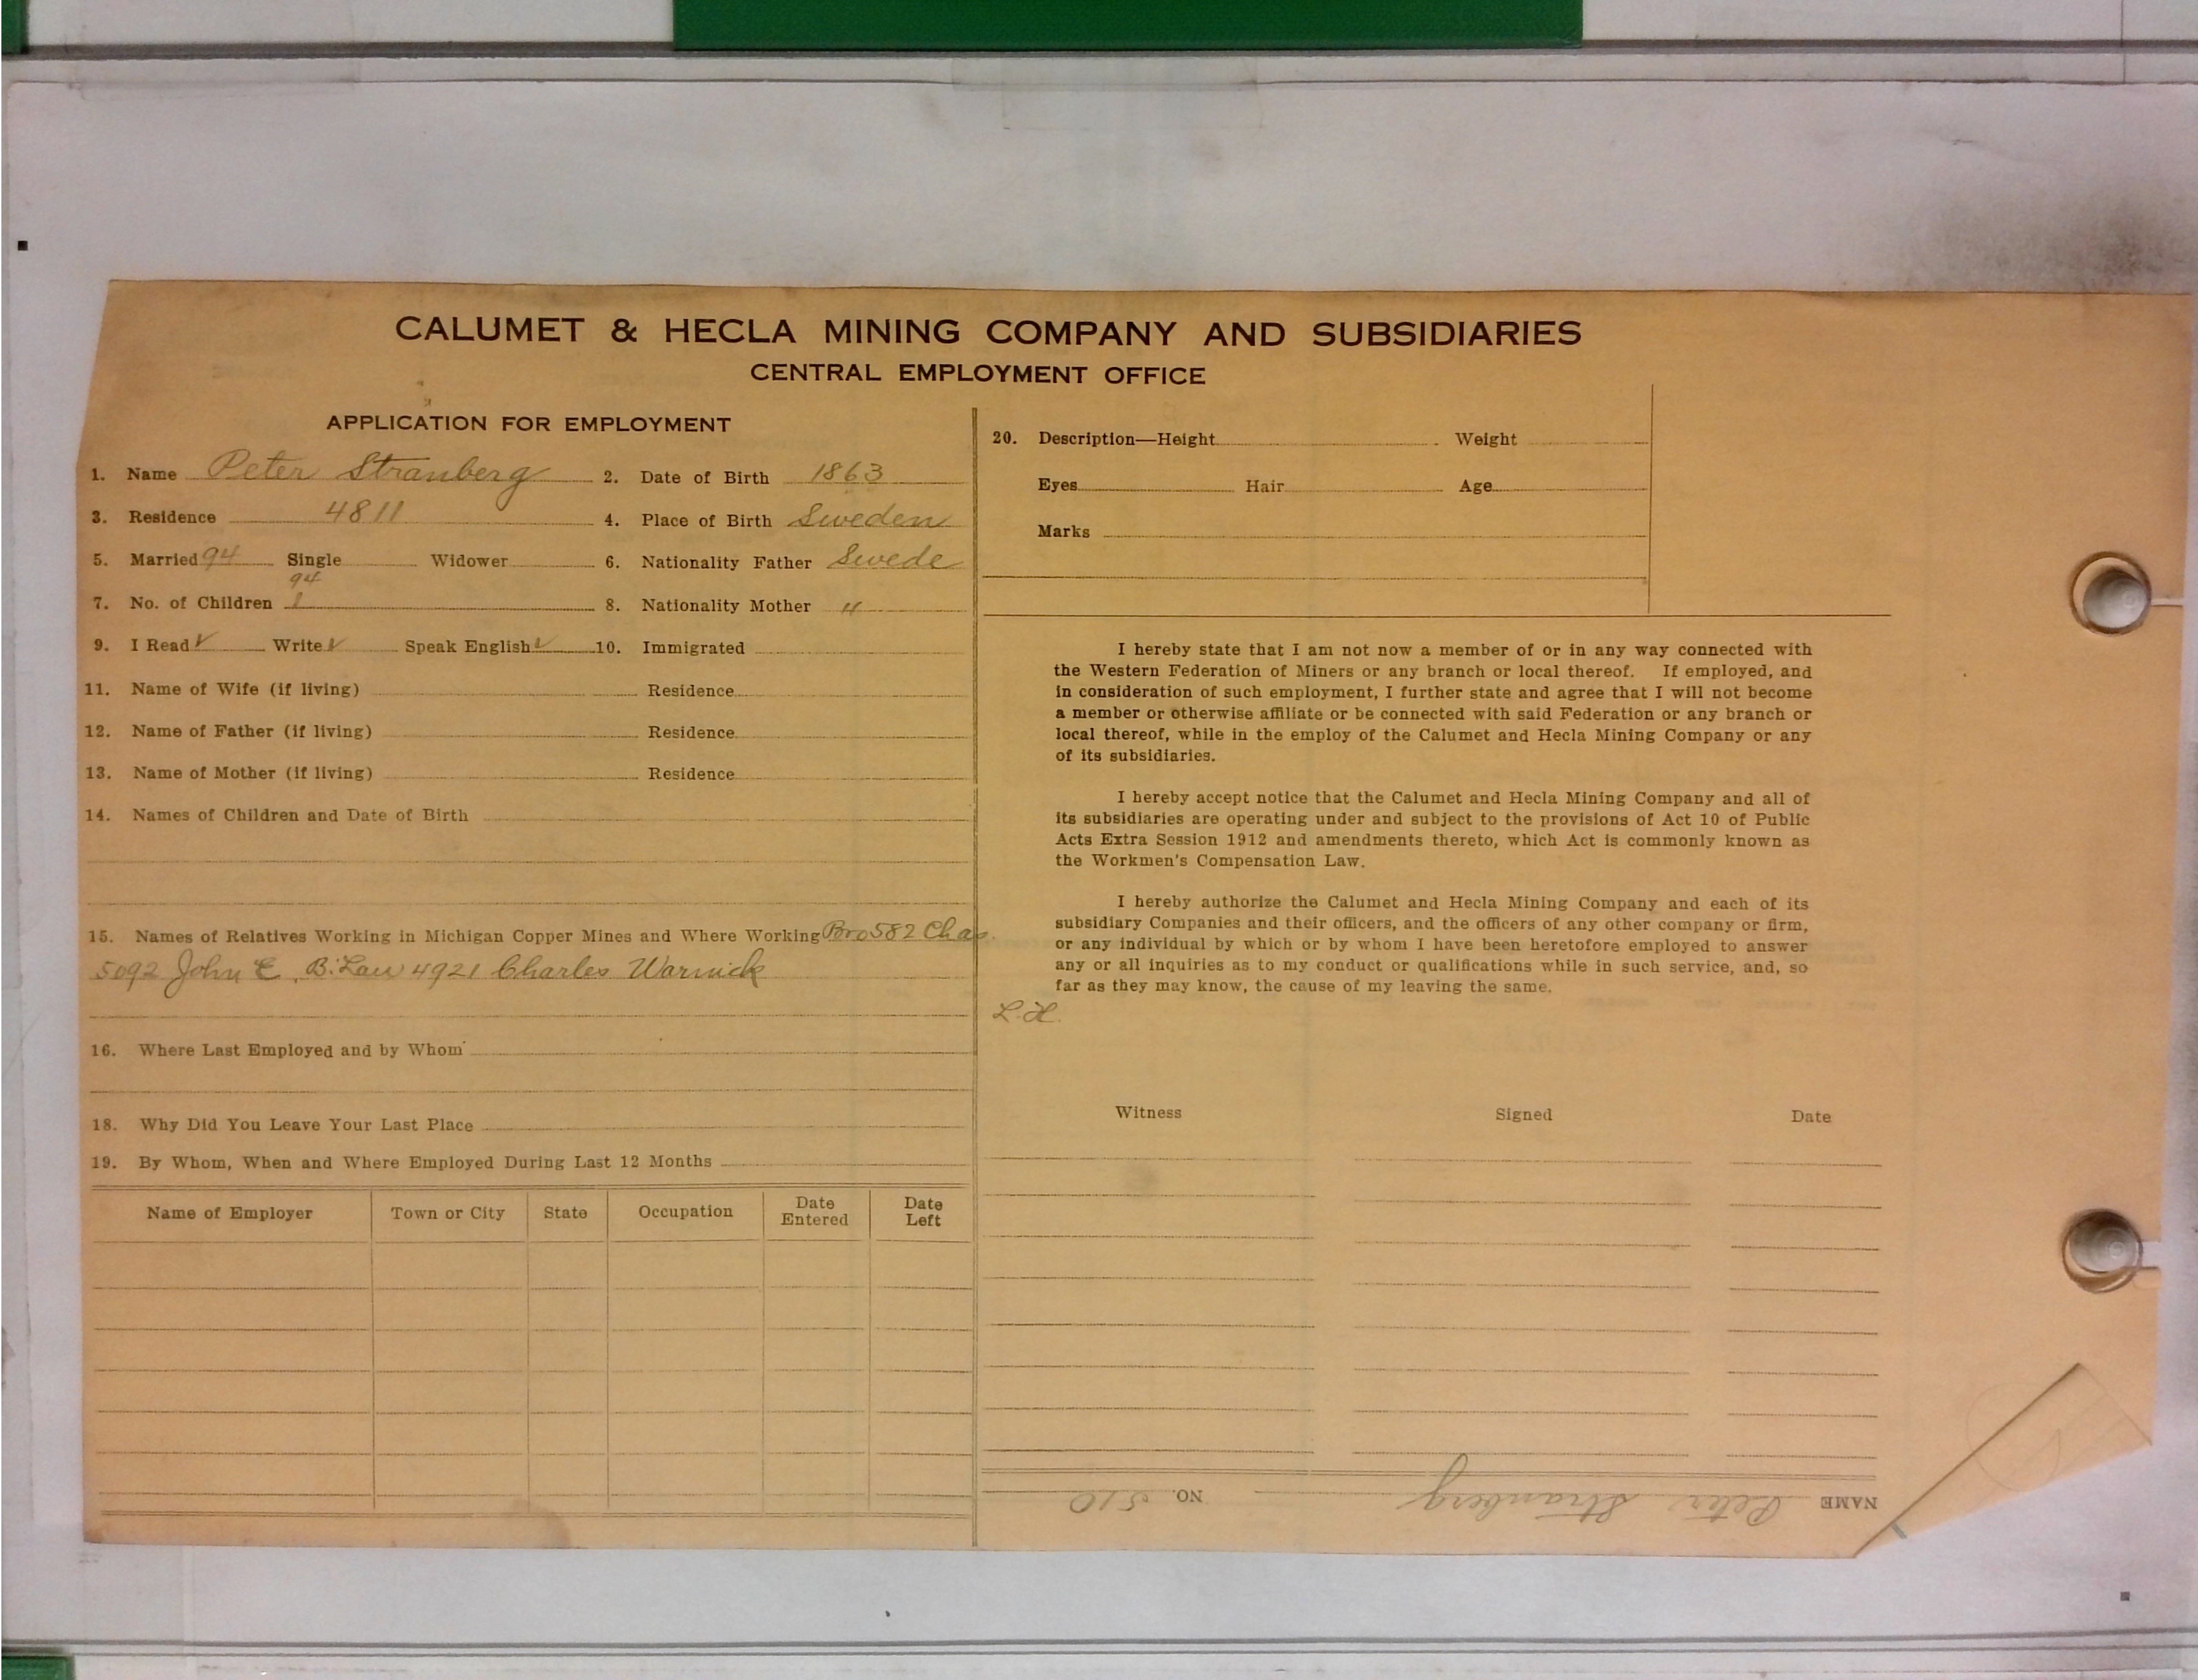 CALUMET & HECLA MINING COMPANY AND SUBSIDIARIES
CENTRAL EMPLOYMENT OFFICE
APPLICATION FOR EMPLOYMENT
1. Name Peter Stranberg 2. Date of Birth 1863
3. Residence 4811 4. Place of Birth Sweden
5. Married 94 Single Widower 6. Nationality Father Swede
94
7. No. of Children 1 8. Nationality Mother "
9. I Read ✓ Write ✓ Speak English ✓ 10. Immigrated
11. Name of Wife (if living) Residence
12. Name of Father (if living) Residence
13. Name of Mother (if living) Residence
14. Names of Children and Date of Birth
15. Names of Relatives Working in Michigan Copper Mines and Where Working Bro 582 Chas.
5092 John E. B. Law 4921 Charles Warnick
16. Where Last Employed and by Whom
18. Why Did You Leave Your Last Place
19. By Whom, When and Where Employed During Last 12 Months
Name of Employer Town or City State Occupation Date Entered Date Left
20. Description—Height Weight
Eyes Hair Age
Marks
I hereby state that I am not now a member of or in any way connected with
the Western Federation of Miners or any branch or local thereof. If employed, and
in consideration of such employment, I further state and agree that I will not become
a member or otherwise affiliate or be connected with said Federation or any branch or
local thereof, while in the employ of the Calumet and Hecla Mining Company or any
of its subsidiaries.
I hereby accept notice that the Calumet and Hecla Mining Company and all of
its subsidiaries are operating under and subject to the provisions of Act 10 of Public
Acts Extra Session 1912 and amendments thereto, which Act is commonly known as
the Workmen's Compensation Law.
I hereby authorize the Calumet and Hecla Mining Company and each of its
subsidiary Companies and their officers, and the officers of any other company or firm,
or any individual by which or by whom I have been heretofore employed to answer
any or all inquiries as to my conduct or qualifications while in such service, and, so
far as they may know, the cause of my leaving the same.
L.H.
Witness Signed Date
NAME Peter Stranberg NO. 510